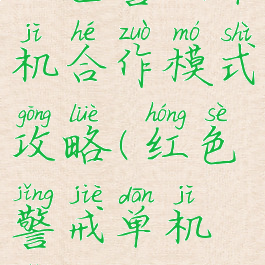 jī hé zuò mó shì
机合作模式
gōng lüè hóng sè
攻略(红色
jǐng jiè dān jī
警戒单机